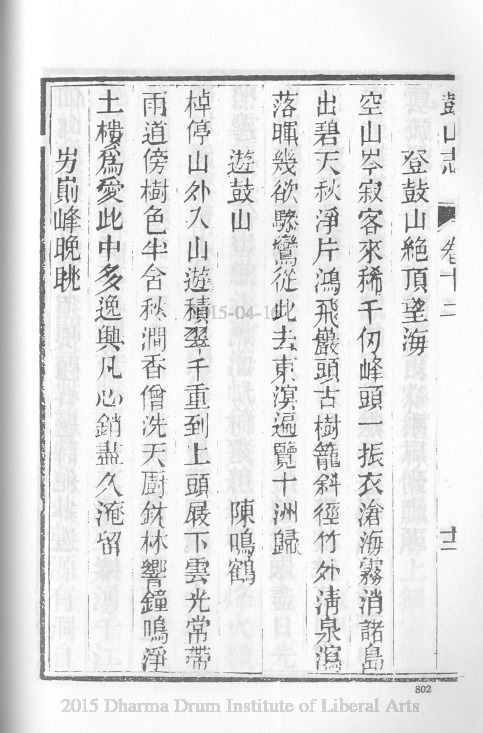 鼓山志 卷十二 十二
登鼓山絶頂望海
空山岑寂客來稀千仞峰頭一振衣滄海霧消諸島
出碧天秋淨片鴻飛巖頭古樹籠斜徑竹外清泉瀉
落暉幾欲驂鸞從此去東溟遍覽十洲歸
遊鼓山 陳鳴鶴
棹停山外入山遊積翠千重到上頭屐下雲光常帶
雨道傍樹色半含秋澗香僧洗天厨鉢林響鐘鳴淨
土樓爲愛此中多逸興凡心銷盡久淹留
屴崱峰晚眺
802
2015-04-16
2015 Dharma Drum Institute of Liberal Arts